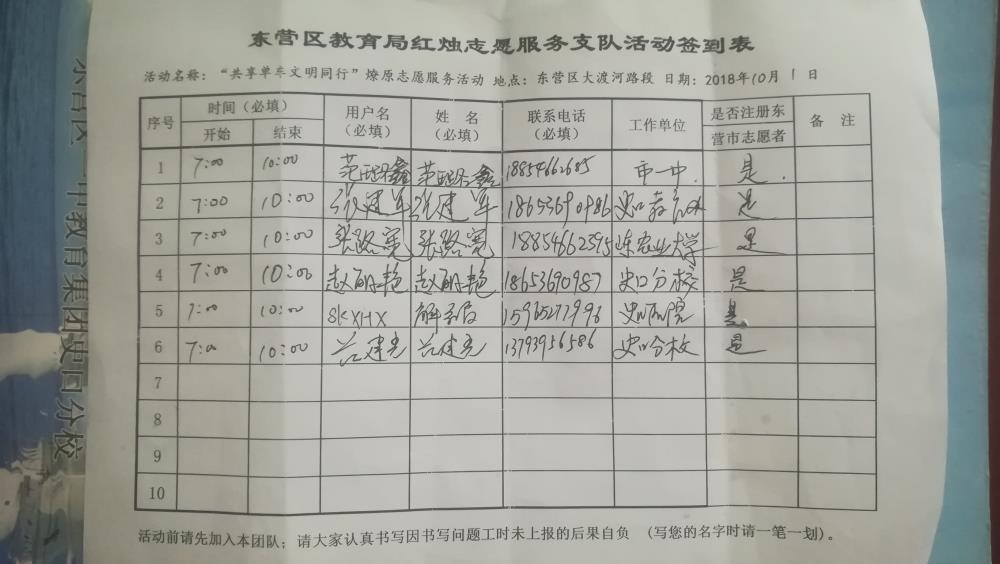 东营区教育局红烛志愿服务支队活动签到表
活动名称：“共享单车文明同行”燎原志愿服务活动 地点：东营区大渡河路段 日期：2018年10月1日
序号 时间（必填） 用户名（必填） 姓 名（必填） 联系电话（必填） 工作单位 是否注册东营市志愿者 备 注
开始 结束
1 7:00 10:00 18854662685 市一中. 是.
2 7:00 10:00 张建军 张建军 18653690986 是
3 7:00 10:00 张路宽 张路宽 18854662595 东农业大学 是
4 7:00 10:00 赵丽艳 赵丽艳 18653690987 史口分校 是
5 7:00 10:00 SKXHX 15965277996 是
6 7:00 10:00 13793956586 史口分校 是
7
8
9
10
活动前请先加入本团队；请大家认真书写因书写问题工时未上报的后果自负 （写您的名字时请一笔一划）。
中教育集团史口分校